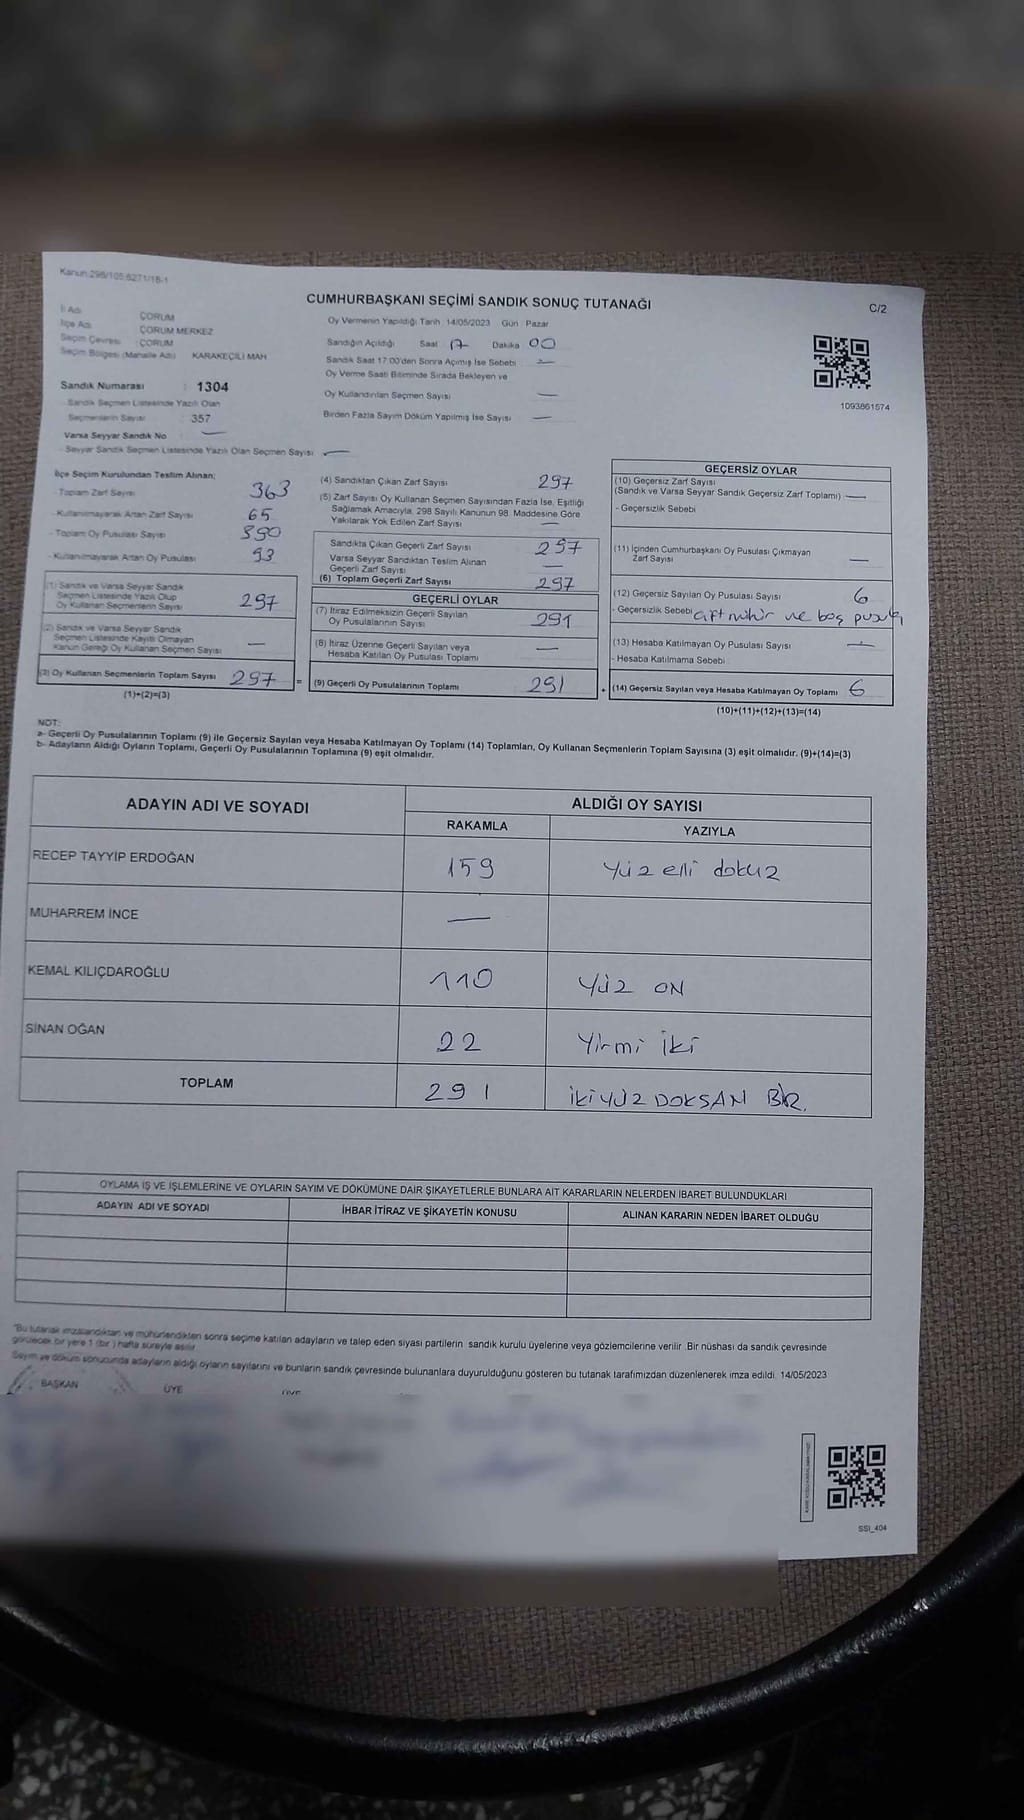 Kanun:298/105;6271/18-1
CUMHURBAŞKANI SEÇİMİ SANDIK SONUÇ TUTANAĞI
C/2
İl Adı : ÇORUM
İlçe Adı : ÇORUM MERKEZ
Seçim Çevresi : ÇORUM
Seçim Bölgesi (Mahalle Adı) KARAKEÇİLİ MAH
Sandık Numarası : 1304
- Sandık Seçmen Listesinde Yazılı Olan
Seçmenlerin Sayısı : 357
Varsa Seyyar Sandık No —
- Seyyar Sandık Seçmen Listesinde Yazılı Olan Seçmen Sayısı —
Oy Vermenin Yapıldığı Tarih :14/05/2023 Gün : Pazar
Sandığın Açıldığı Saat 17 Dakika 00
Sandık Saat 17:00'den Sonra Açılmış İse Sebebi —
Oy Verme Saati Bitiminde Sırada Bekleyen ve
Oy Kullandırılan Seçmen Sayısı —
Birden Fazla Sayım Döküm Yapılmış İse Sayısı —
1093861574
İlçe Seçim Kurulundan Teslim Alınan;
- Toplam Zarf Sayısı 363
- Kullanılmayarak Artan Zarf Sayısı 65
- Toplam Oy Pusulası Sayısı 390
- Kullanılmayarak Artan Oy Pusulası 93
(1) Sandık ve Varsa Seyyar Sandık
Seçmen Listesinde Yazılı Olup
Oy Kullanan Seçmenlerin Sayısı 297
(2) Sandık ve Varsa Seyyar Sandık
Seçmen Listesinde Kayıtlı Olmayan
Kanun Gereği Oy Kullanan Seçmen Sayısı —
(3) Oy Kullanan Seçmenlerin Toplam Sayısı 297
(1)+(2)=(3)
=
(4) Sandıktan Çıkan Zarf Sayısı 297
(5) Zarf Sayısı Oy Kullanan Seçmen Sayısından Fazla İse, Eşitliği
Sağlamak Amacıyla, 298 Sayılı Kanunun 98. Maddesine Göre
Yakılarak Yok Edilen Zarf Sayısı —
Sandıkta Çıkan Geçerli Zarf Sayısı 297
Varsa Seyyar Sandıktan Teslim Alınan
Geçerli Zarf Sayısı —
(6) Toplam Geçerli Zarf Sayısı 297
GEÇERLİ OYLAR
(7) İtiraz Edilmeksizin Geçerli Sayılan
Oy Pusulalarının Sayısı 291
(8) İtiraz Üzerine Geçerli Sayılan veya
Hesaba Katılan Oy Pusulası Toplamı —
(9) Geçerli Oy Pusulalarının Toplamı 291
+
GEÇERSİZ OYLAR
(10) Geçersiz Zarf Sayısı
(Sandık ve Varsa Seyyar Sandık Geçersiz Zarf Toplamı) —
- Geçersizlik Sebebi
(11) İçinden Cumhurbaşkanı Oy Pusulası Çıkmayan
Zarf Sayısı —
(12) Geçersiz Sayılan Oy Pusulası Sayısı 6
- Geçersizlik Sebebi çift mühür ve boş pusula
(13) Hesaba Katılmayan Oy Pusulası Sayısı —
- Hesaba Katılmama Sebebi
(14) Geçersiz Sayılan veya Hesaba Katılmayan Oy Toplamı 6
(10)+(11)+(12)+(13)=(14)
NOT:
a- Geçerli Oy Pusulalarının Toplamı (9) ile Geçersiz Sayılan veya Hesaba Katılmayan Oy Toplamı (14) Toplamları, Oy Kullanan Seçmenlerin Toplam Sayısına (3) eşit olmalıdır. (9)+(14)=(3)
b- Adayların Aldığı Oyların Toplamı, Geçerli Oy Pusulalarının Toplamına (9) eşit olmalıdır.
ADAYIN ADI VE SOYADI ALDIĞI OY SAYISI
RAKAMLA YAZIYLA
RECEP TAYYİP ERDOĞAN 159 Yüz elli dokuz
MUHARREM İNCE —
KEMAL KILIÇDAROĞLU 110 Yüz ON
SİNAN OĞAN 22 Yirmi iki
TOPLAM 291 İKİYÜZ DOKSAN BİR.
OYLAMA İŞ VE İŞLEMLERİNE VE OYLARIN SAYIM VE DÖKÜMÜNE DAİR ŞİKAYETLERLE BUNLARA AİT KARARLARIN NELERDEN İBARET BULUNDUKLARI
ADAYIN ADI VE SOYADI İHBAR İTİRAZ VE ŞİKAYETİN KONUSU ALINAN KARARIN NEDEN İBARET OLDUĞU
*Bu tutanak imzalandıktan ve mühürlendikten sonra seçime katılan adayların ve talep eden siyasi partilerin sandık kurulu üyelerine veya gözlemcilerine verilir. Bir nüshası da sandık çevresinde
görülecek bir yere 1 (bir) hafta süreyle asılır.
Sayım ve döküm sonucunda adayların aldığı oyların sayılarını ve bunların sandık çevresinde bulunanlara duyurulduğunu gösteren bu tutanak tarafımızdan düzenlenerek imza edildi. 14/05/2023
BAŞKAN ÜYE ÜYE
SSI_404